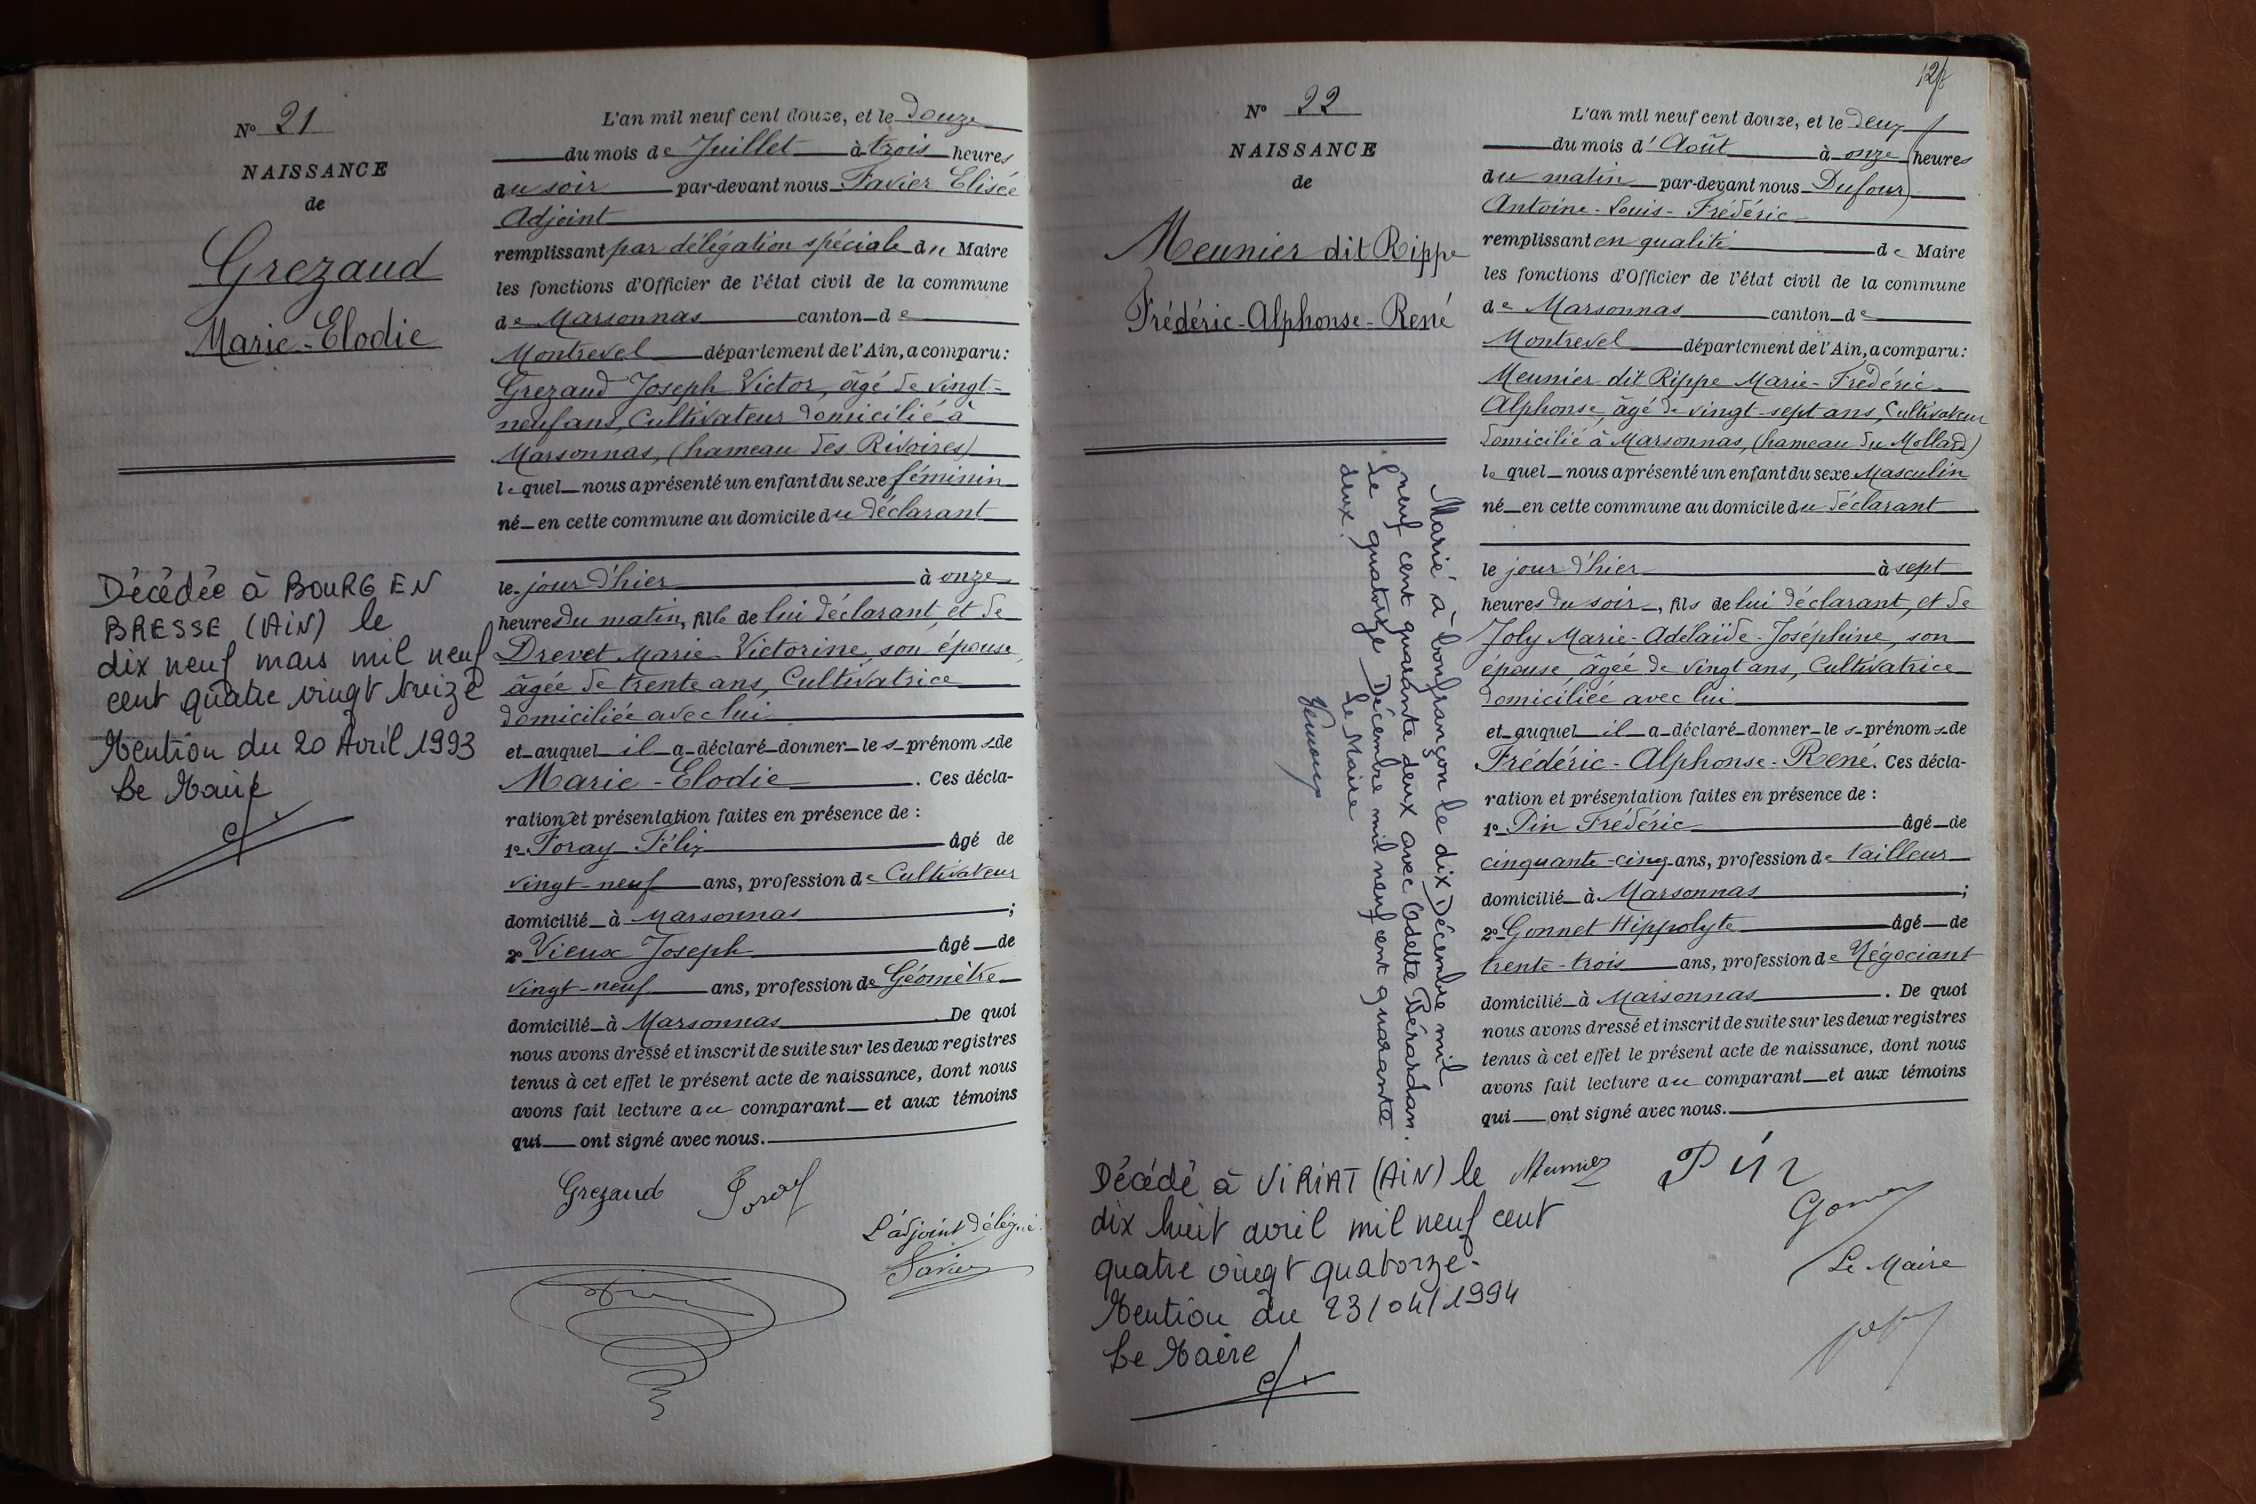 N° 21
NAISSANCE
de
Grezaud
Marie-Elodie
Décédée à BOURG EN
BRESSE (AIN) le
dix neuf mars mil neuf
cent quatre vingt treize
Mention du 20 Avril 1993
Le Maire
L'an mil neuf cent douze, et le douze
du mois de Juillet à trois heures
du soir par-devant nous Favier Elisée
Adjoint
remplissant par délégation spéciale du Maire
les fonctions d'Officier de l'état civil de la commune
de Marsonnas canton de
Montrevel département de l'Ain, a comparu :
Grezaud Joseph Victor, âgé de vingt-
neuf ans, Cultivateur domicilié à
Marsonnas, (hameau des Rivoires)
lequel nous a présenté un enfant du sexe féminin
né en cette commune au domicile du déclarant
le jour d'hier à onze
heures du matin, fille de lui déclarant, et de
Drevet Marie-Victorine, son épouse,
âgée de trente ans, Cultivatrice
domiciliée avec lui
et auquel il a déclaré donner les prénoms de
Marie-Elodie. Ces décla-
ration et présentation faites en présence de :
1° Foray Félix âgé de
vingt-neuf ans, profession de Cultivateur
domicilié à Marsonnas ;
2° Vieux Joseph âgé de
vingt-neuf ans, profession de Géomètre
domicilié à Marsonnas. De quoi
nous avons dressé et inscrit de suite sur les deux registres
tenus à cet effet le présent acte de naissance, dont nous
avons fait lecture au comparant et aux témoins
qui ont signé avec nous.
Grezaud Foray
L'adjoint délégué
Favier
N° 22
NAISSANCE
de
Meunier dit Rippe
Frédéric-Alphonse-René
Marié à Confrançon le dix Décembre mil
neuf cent quarante deux avec Odette Bérardan.
Le quatorze Décembre mil neuf cent quarante
deux. Le Maire
Décédé à VIRIAT (AIN) le
dix huit avril mil neuf cent
quatre vingt quatorze.
Mention du 23/04/1994
Le Maire
L'an mil neuf cent douze, et le deux
du mois d'Août à onze heures
du matin par-devant nous Dufour
Antoine-Louis-Frédéric
remplissant en qualité de Maire
les fonctions d'Officier de l'état civil de la commune
de Marsonnas canton de
Montrevel département de l'Ain, a comparu :
Meunier dit Rippe Marie-Frédéric-
Alphonse, âgé de vingt-sept ans, Cultivateur
domicilié à Marsonnas, (hameau du Mollard)
lequel nous a présenté un enfant du sexe Masculin
né en cette commune au domicile du déclarant
le jour d'hier à sept
heures du soir, fils de lui déclarant, et de
Joly Marie-Adélaïde-Joséphine, son
épouse, âgée de vingt ans, Cultivatrice
domiciliée avec lui
et auquel il a déclaré donner les prénoms de
Frédéric-Alphonse-René. Ces décla-
ration et présentation faites en présence de :
1° Pin Frédéric âgé de
cinquante-cinq ans, profession de tailleur
domicilié à Marsonnas ;
2° Gonnet Hippolyte âgé de
trente-trois ans, profession de Négociant
domicilié à Marsonnas. De quoi
nous avons dressé et inscrit de suite sur les deux registres
tenus à cet effet le présent acte de naissance, dont nous
avons fait lecture au comparant et aux témoins
qui ont signé avec nous.
Meunier Pin
Le Maire